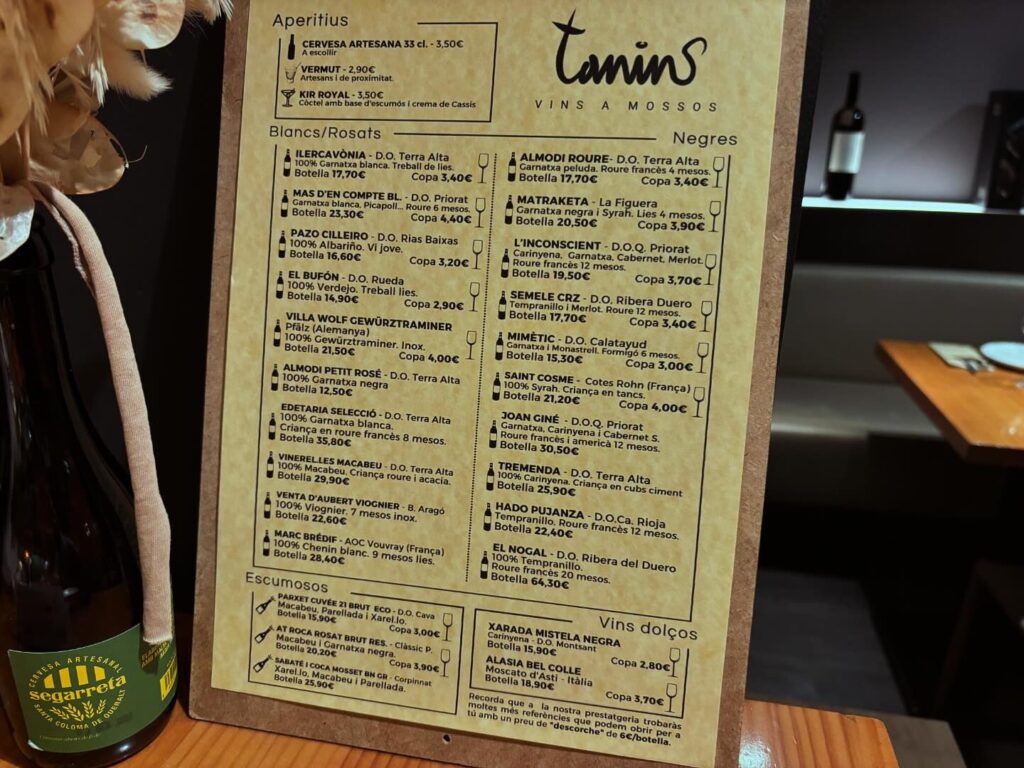 Aperitius
CERVESA ARTESANA 33 cl. - 3,50€
A escollir
VERMUT - 2,90€
Artesans i de proximitat.
KIR ROYAL - 3,50€
Còctel amb base d'escumós i crema de Cassis
tanins
VINS A MOSSOS
Blancs/Rosats
ILERCAVÒNIA - D.O. Terra Alta
100% Garnatxa blanca. Treball de lies.
Botella 17,70€ Copa 3,40€
MAS D'EN COMPTE BL. - D.O. Priorat
Garnatxa blanca, Picapoll... Roure 6 mesos.
Botella 23,30€ Copa 4,40€
PAZO CILLEIRO - D.O. Rias Baixas
100% Albariño. Vi jove.
Botella 16,60€ Copa 3,20€
EL BUFÓN - D.O. Rueda
100% Verdejo. Treball lies.
Botella 14,90€ Copa 2,90€
VILLA WOLF GEWÜRZTRAMINER
Pfälz (Alemanya)
100% Gewürztraminer. Inox.
Botella 21,50€ Copa 4,00€
ALMODI PETIT ROSÉ - D.O. Terra Alta
100% Garnatxa negra
Botella 12,50€
EDETARIA SELECCIÓ - D.O. Terra Alta
100% Garnatxa blanca.
Criança en roure francès 8 mesos.
Botella 35,80€
VINERELLES MACABEU - D.O. Terra Alta
100% Macabeu. Criança roure i acacia.
Botella 29,90€
VENTA D'AUBERT VIOGNIER - B. Aragó
100% Viognier. 7 mesos inox.
Botella 22,60€
MARC BRÉDIF - AOC Vouvray (França)
100% Chenin blanc. 9 mesos lies.
Botella 28,40€
Negres
ALMODI ROURE- D.O. Terra Alta
Garnatxa peluda. Roure francès 4 mesos.
Botella 17,70€ Copa 3,40€
MATRAKETA - La Figuera
Garnatxa negra i Syrah. Lies 4 mesos.
Botella 20,50€ Copa 3,90€
L'INCONSCIENT - D.O.Q. Priorat
Carinyena, Garnatxa, Cabernet, Merlot.
Roure francès 12 mesos.
Botella 19,50€ Copa 3,70€
SEMELE CRZ - D.O. Ribera Duero
Tempranillo i Merlot. Roure 12 mesos.
Botella 17,70€ Copa 3,40€
MIMÈTIC - D.O. Calatayud
Garnatxa i Monastrell. Formigó 6 mesos.
Botella 15,30€ Copa 3,00€
SAINT COSME - Cotes Rohn (França)
100% Syrah. Criança en tancs.
Botella 21,20€ Copa 4,00€
JOAN GINÉ - D.O.Q. Priorat
Garnatxa, Carinyena i Cabernet S.
Roure francès i americà 12 mesos.
Botella 30,50€
TREMENDA - D.O. Terra Alta
100% Carinyena. Criança en cubs ciment
Botella 25,90€
HADO PUJANZA - D.O.Ca. Rioja
Tempranillo. Roure francès 12 mesos.
Botella 22,40€
EL NOGAL - D.O. Ribera del Duero
100% Tempranillo.
Roure francès 20 mesos.
Botella 64,30€
Escumosos
PARXET CUVÉE 21 BRUT ECO - D.O. Cava
Macabeu, Parellada i Xarel.lo.
Botella 15,90€ Copa 3,00€
AT ROCA ROSAT BRUT RES. - Clàssic P.
Macabeu i Garnatxa negra.
Botella 20,20€ Copa 3,90€
SABATÉ I COCA MOSSET BN GR - Corpinnat
Xarel.lo, Macabeu i Parellada.
Botella 25,90€
Vins dolços
XARADA MISTELA NEGRA
Carinyena - D.O. Montsant
Botella 15,90€ Copa 2,80€
ALASIA BEL COLLE
Moscato d'Asti - Itàlia
Botella 18,90€ Copa 3,70€
Recorda que a la nostra prestatgeria trobaràs
moltes més referències que podem obrir per a
tú amb un preu de "descorche" de 6€/botella.
CERVESA ARTESANAL
segarreta
SANTA COLOMA DE QUERALT